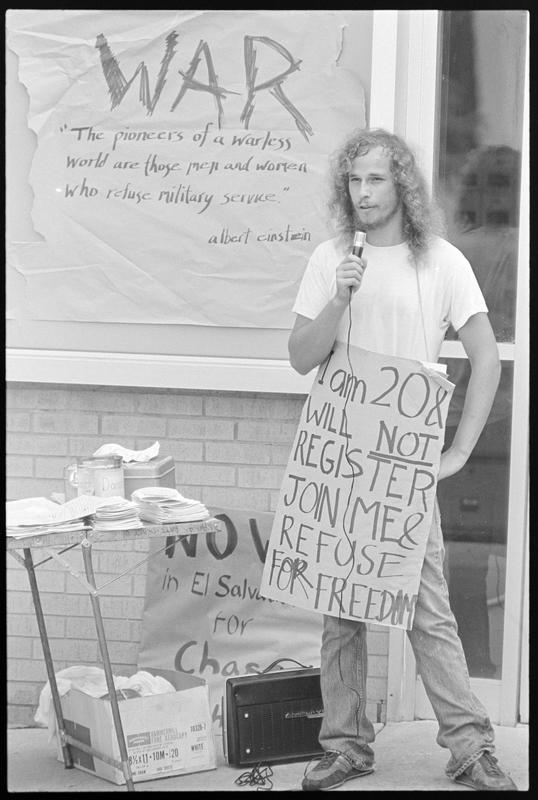 WAR
"The pioneers of a warless
world are those men and women
who refuse military service."
albert einstein
I am 20 &
WILL NOT
REGISTER
JOIN ME &
REFUSE
FOR FREEDOM
NOW
in El Salvador
FOR
8½ x 11 • 10M • 20
WHITE